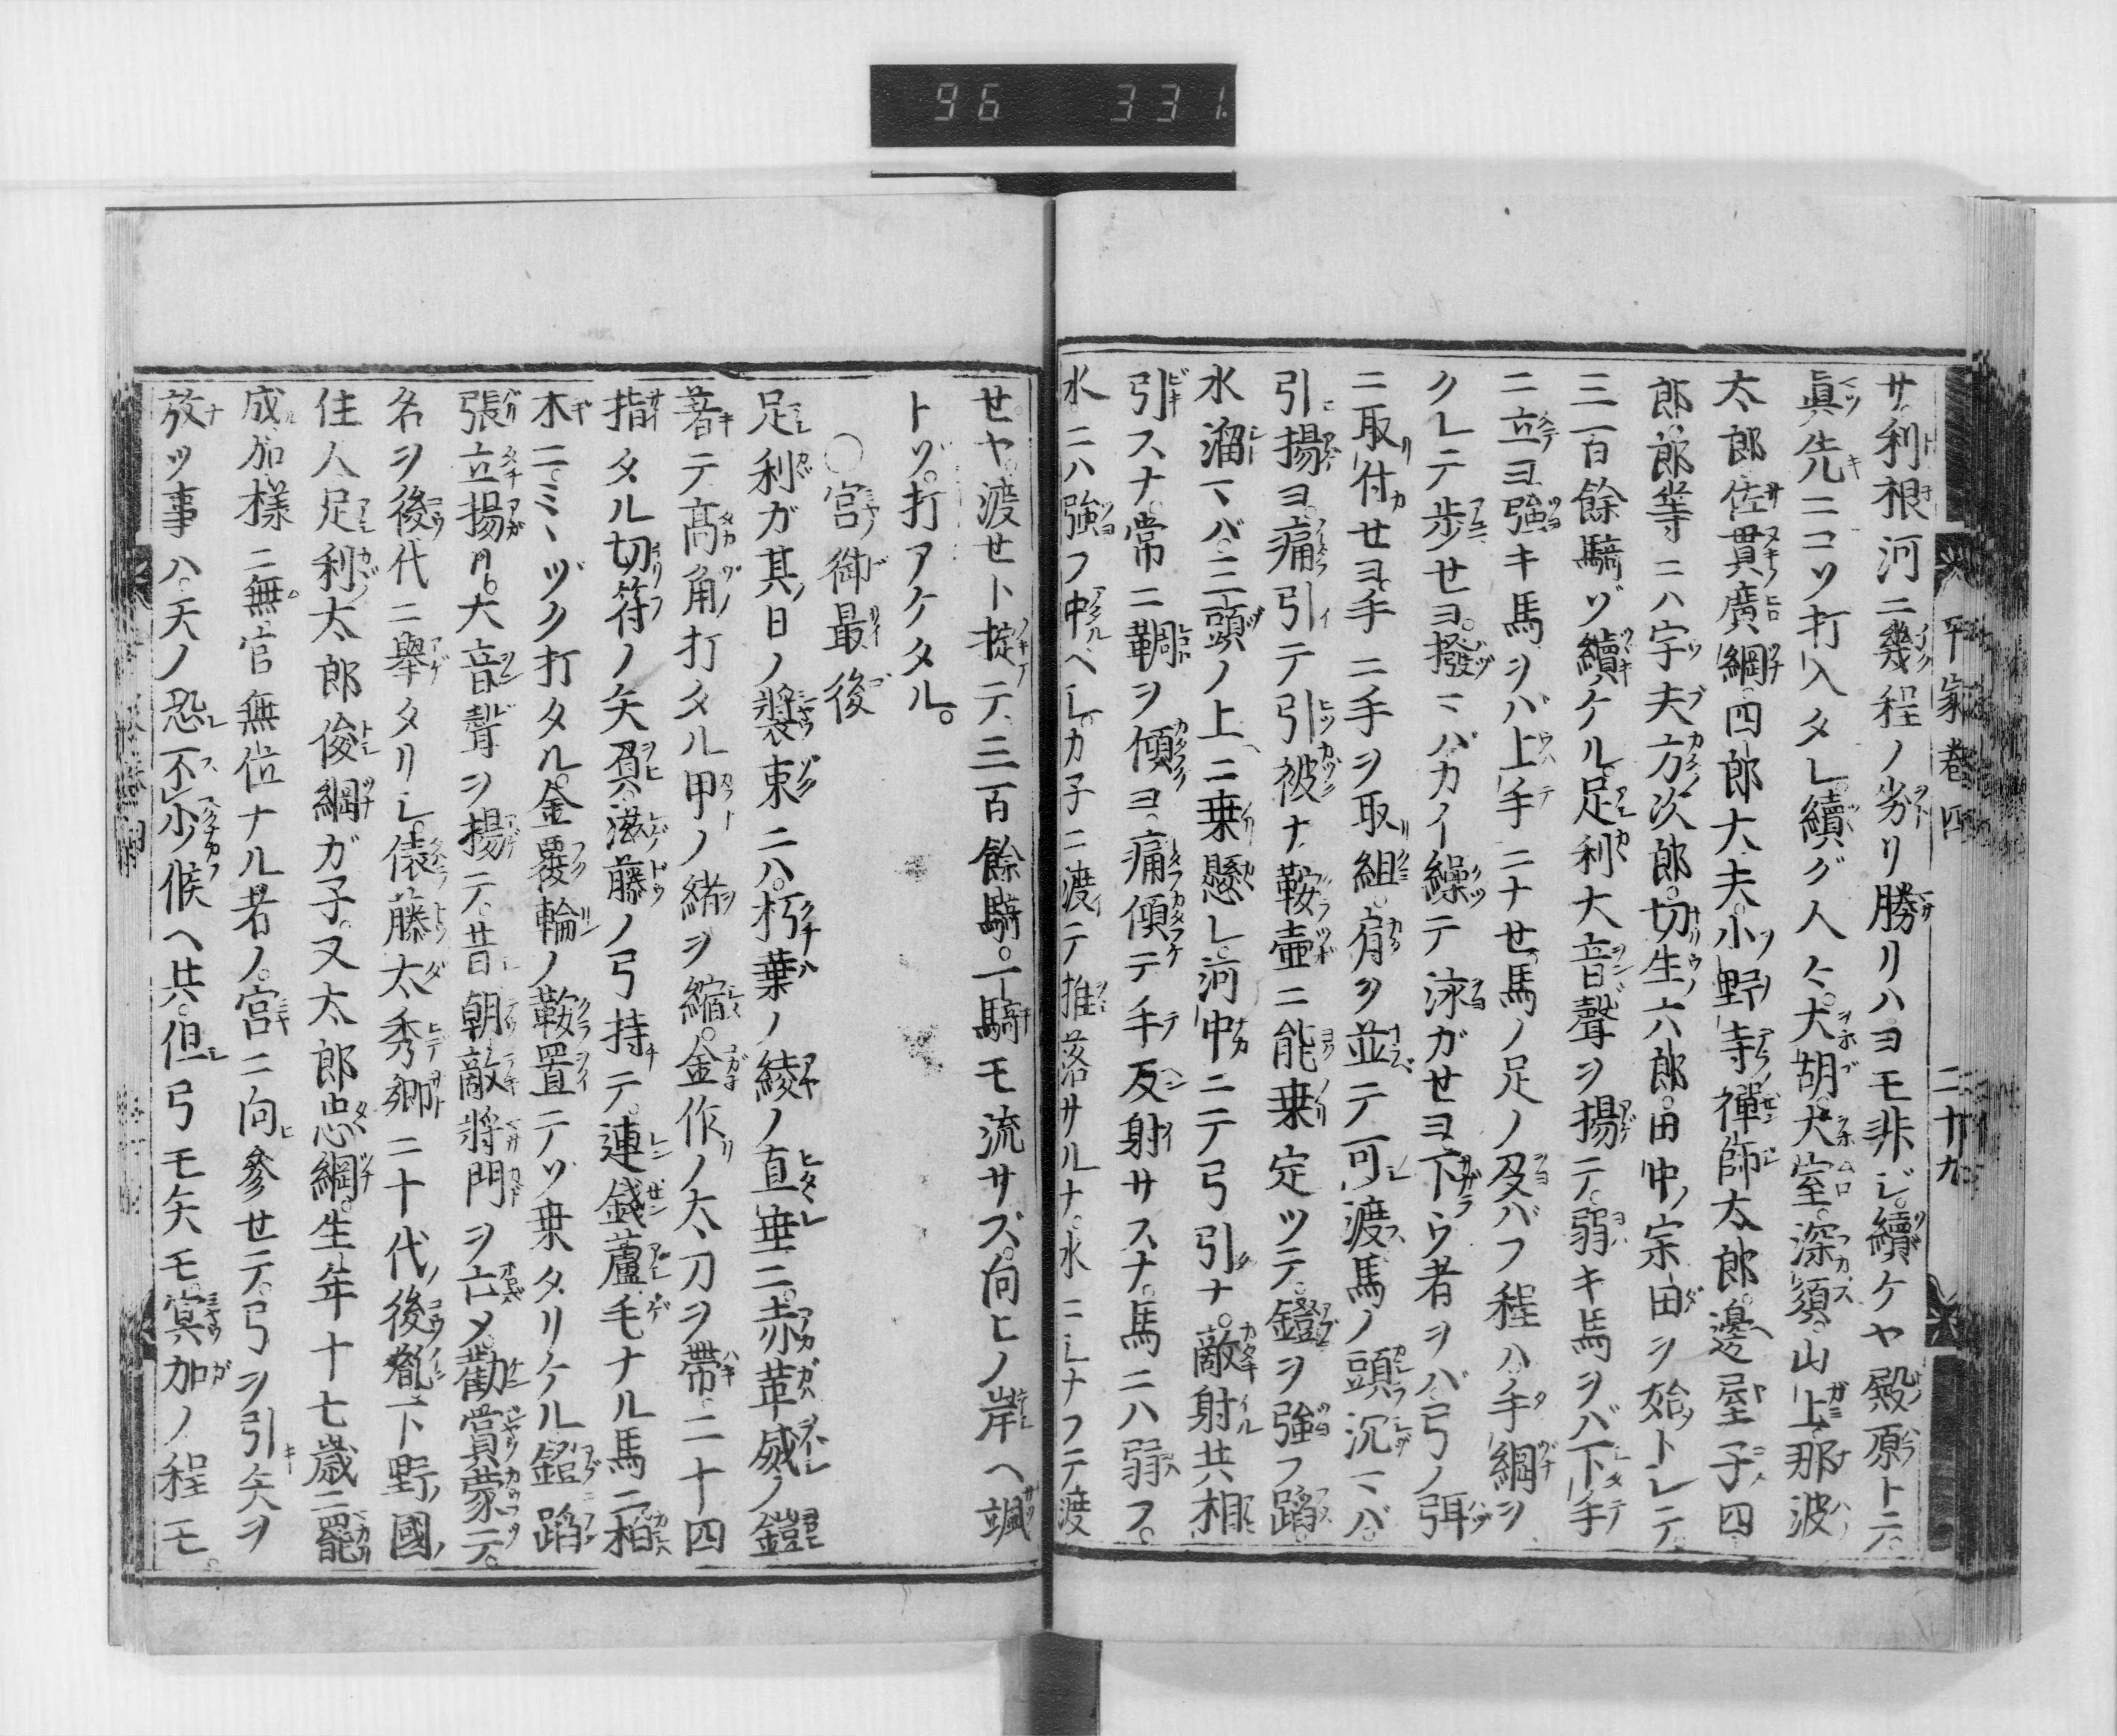 96 331.
平家巻四 二十九
サ利根河ニ幾程ノ劣リ勝リハヨモ非ジ。續ケヤ殿原トニ。
眞先ニコソ打入タレ續グ人々。大胡。大室。深須。山上。那波
太郎。佐貫廣綱四郎大夫。小野寺禅師太郎。邊屋子四
郎。郎等ニハ宇夫方次郎。切生六郎。田中宗田ヲ始トレテ。
三百餘騎ゾ續ケル。足利大音聲ヲ揚テ。弱キ馬ヲバ下手
ニ立ヨ強キ馬ヲバ上手ニナセ馬ノ足ノ及バフ程ハ手綱ヲ
クレテ歩セヨ。撥ミバカイ繰テ泳ガセヨ下ウ者ヲバ弓ノ弭
ニ取付セヨ。手ニ手ヲ取組。肩ヲ並テ可渡馬ノ頭沉マバ。
引揚ヨ。痛引テ引被ナ。鞍壷ニ能乗定ツテ。鐙ヲ強フ蹈。
水溜マバ。三頭ノ上ニ乗懸レ。河中ニテ弓引ナ。敵射共相
引スナ。常ニ鞆ヲ傾ヨ。痛傾テ手反射サスナ。馬ニハ弱フ。
水ニハ強フ中ヘレ。カ子ニ渡テ推落サルナ。水ニレナフテ渡
セヤ。渡セト掟テ。三百餘騎。一騎モ流サズ。向ヒノ岸ヘ颯
トゾ。打アケタル。
○宮御最後
足利ガ其日ノ裝束ニハ。朽葉ノ綾ノ直垂ニ。赤革威ノ鎧
著テ高角打タル甲ノ緒ヲ縮。金作ノ太刀ヲ帯。二十四
指タル切符ノ矢負。滋藤ノ弓持テ。連錢蘆毛ナル馬ニ柏
木ニ。ミヽヅク打タル。金覆輪ノ鞍置テゾ乗タリケル鐙蹈
張立揚リ。大音聲ヲ揚テ。昔朝敵將門ヲ亡メ勸賞蒙テ。
名ヲ後代ニ擧タリレ。俵藤太秀郷ニ十代ノ後胤下野國ノ
住人足利太郎俊綱ガ子。又太郎忠綱。生年十七歳ニ罷
成加樣ニ無官無位ナル者ノ。宮ニ向參セテ。弓ヲ引矢ヲ
放ツ事ハ。天ノ恐不少候ヘ共。但弓モ矢モ。冥加ノ程モ。